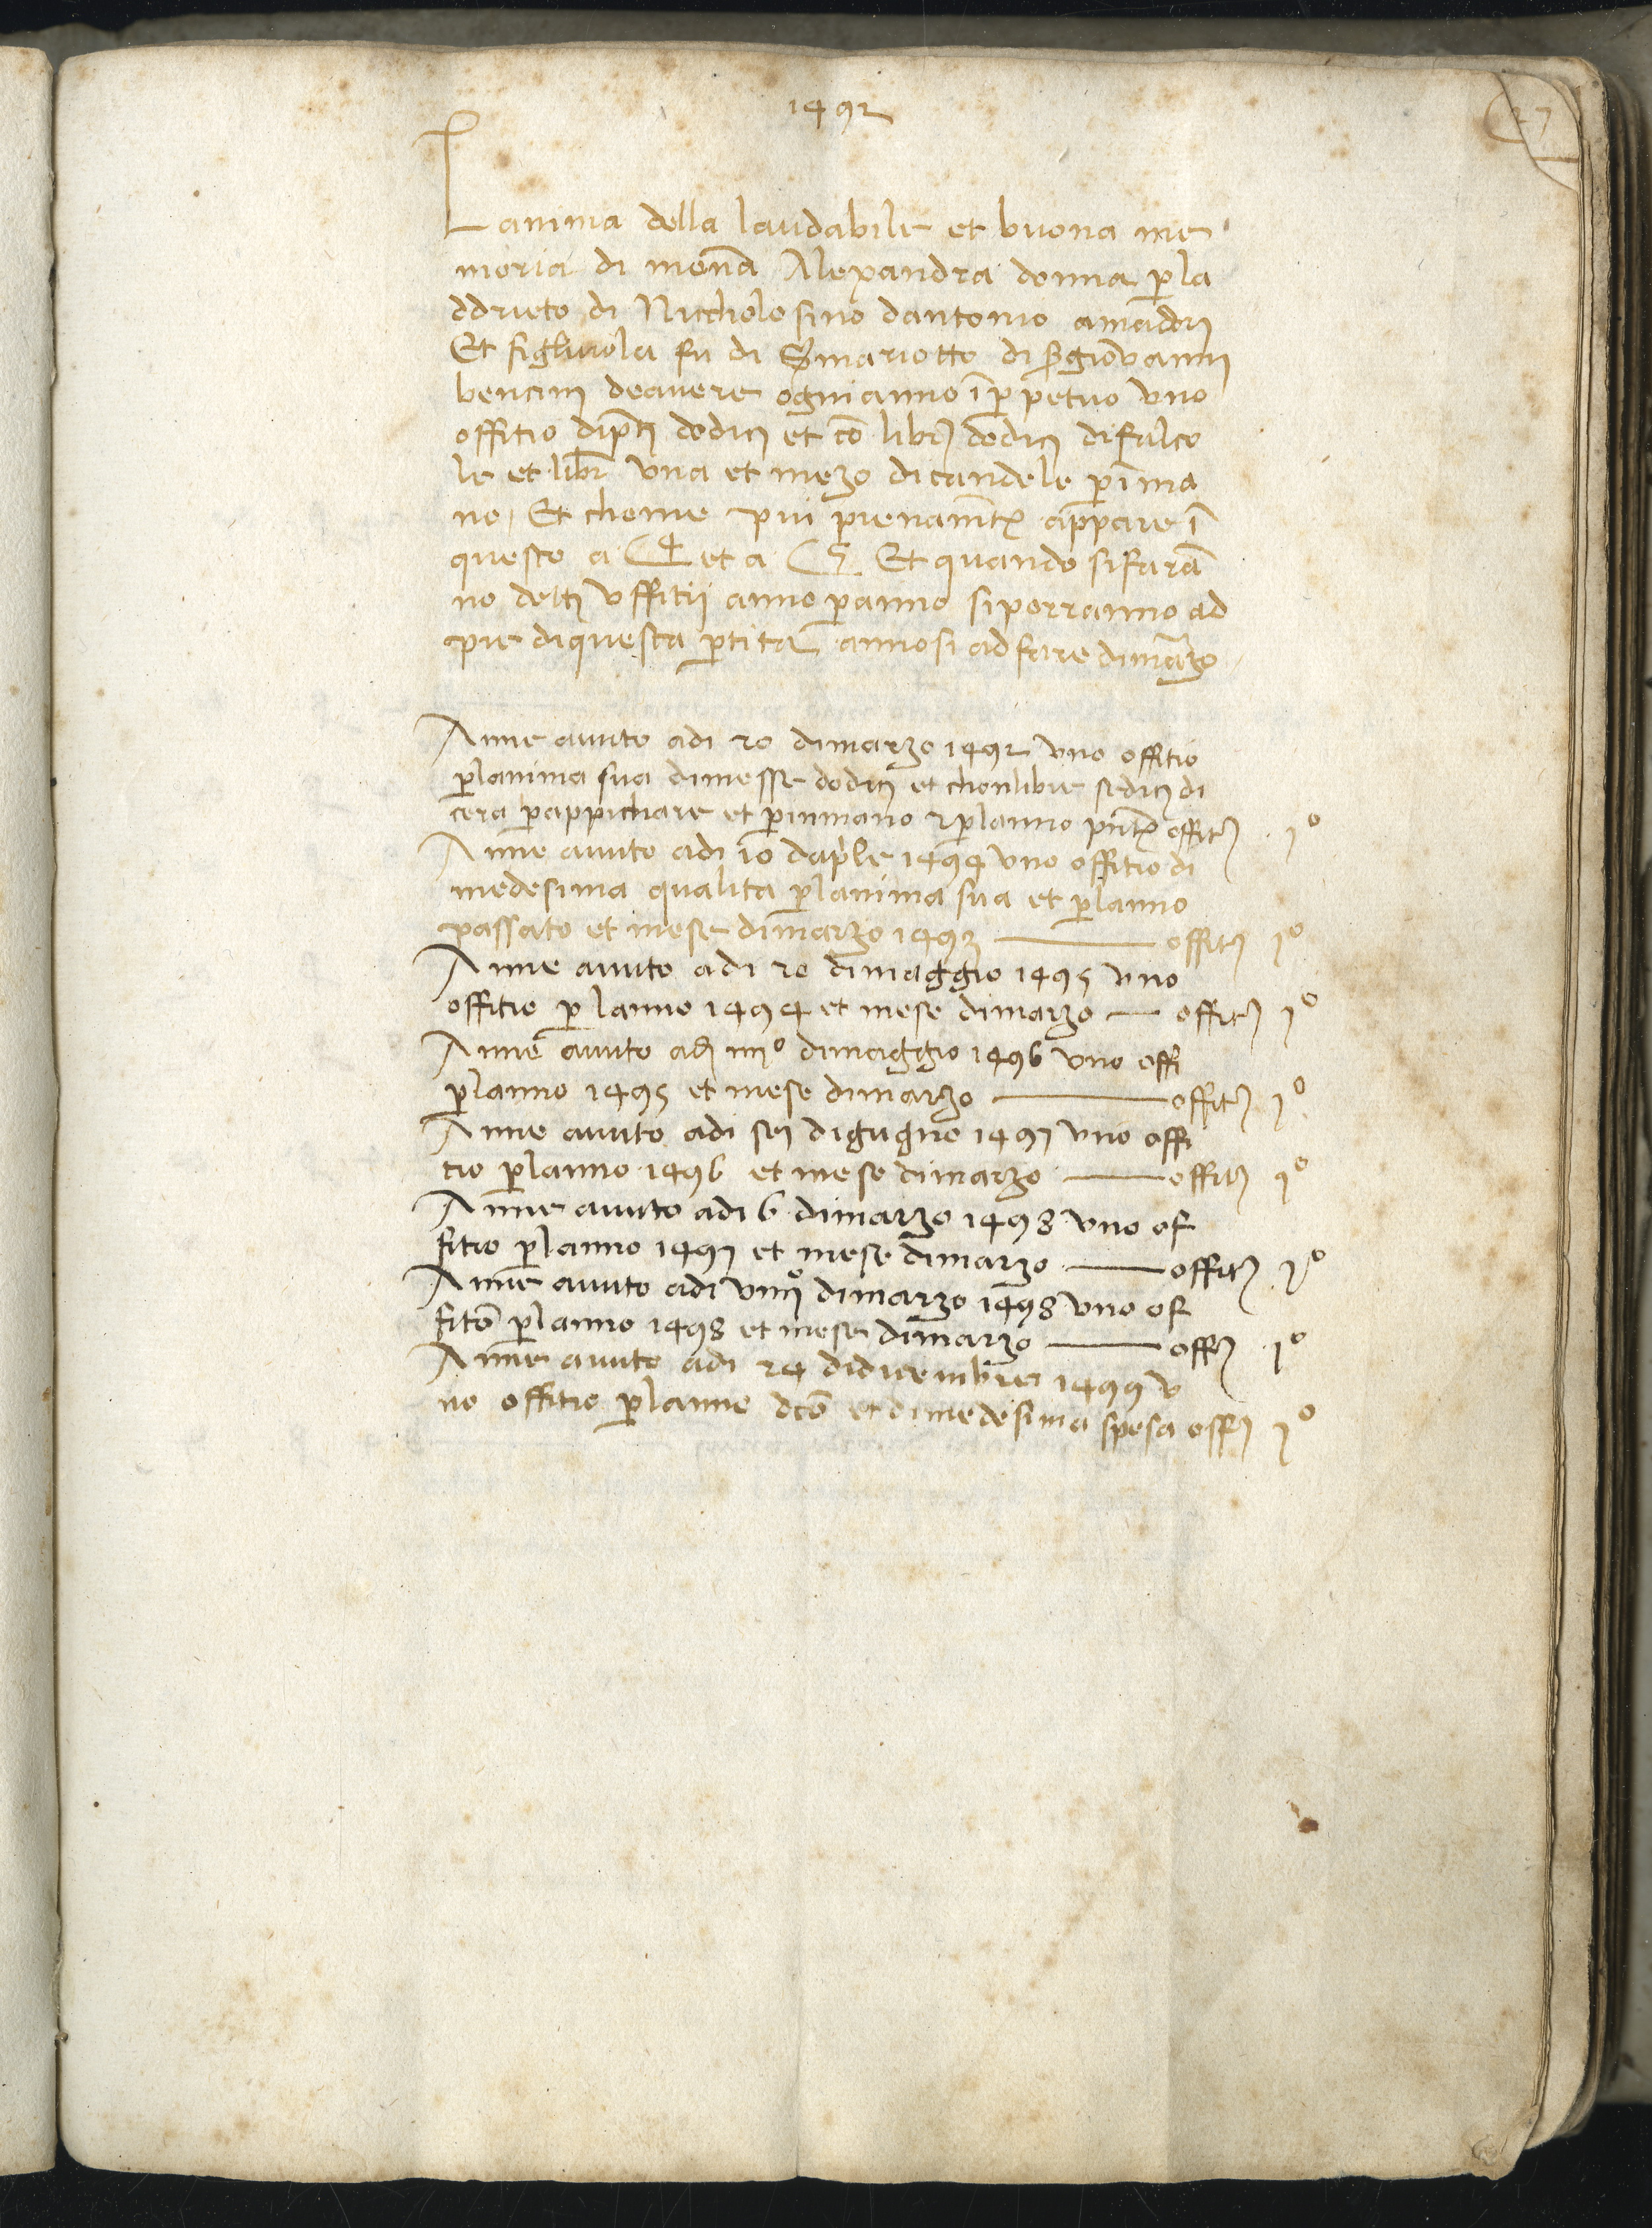 1492
27
Lanima della laudabile et buona me
moria di monā Alexandra donna p̄ la
ddrieto di Niccholosino dantonio amadorj
Et figliuola fu di S mariotto di s̄ giovannj
bencinj de avere ogni anno ī p̄petuo uno
offitio di p̄tj dodicj et cō librj dodicj di falco
le et libr una et mezo di candele p̄ ī ma
no, Et chome piu pienamt̄e appare ī
questo a C 4 et a C 5 Et quando si farā
no dettj uffitii anno p̄ anno si porranno ad
pie di questa p̄tita annosi ad fare di marzo
Anne avuto adi 20 di marzo 1492 uno offitio
p̄ lanima sua di messe dodicj et chon libre sedicj di
cera p̄ appichare et p̄ in mano p̄ lanno pn̄te offitj 1º
Anne avuto adi 10 daprile 1494 uno offitio di
medesima qualita p̄ lanima sua et p̄ lanno
passato et mese di marzo 1493 — offitj 1º
Anne avuto adi 20 di maggio 1495 uno
offitio p̄ lanno 1494 et mese di marzo — offitj 1º
Anne avuto adj iiijº di maggio 1496 uno offi
p̄ lanno 1495 et mese di marzo — offitj 1º
Anne avuto adi sej di gugno 1497 uno offi
tio p̄ lanno 1496 et mese di marzo — offitj 1º
Anne avuto adi 6 di marzo 1498 uno of
fitio p̄ lanno 1497 et mese di marzo — offitj 1º
Anne avuto adi viiijº di marzo 1498 uno of
fitō p̄ lanno 1498 et mese di marzo — offj 1º
Anne avuto adi 24 di dicembre 1499 u
no offitio p̄ lanno dcō et di medesima spesa offj 1º